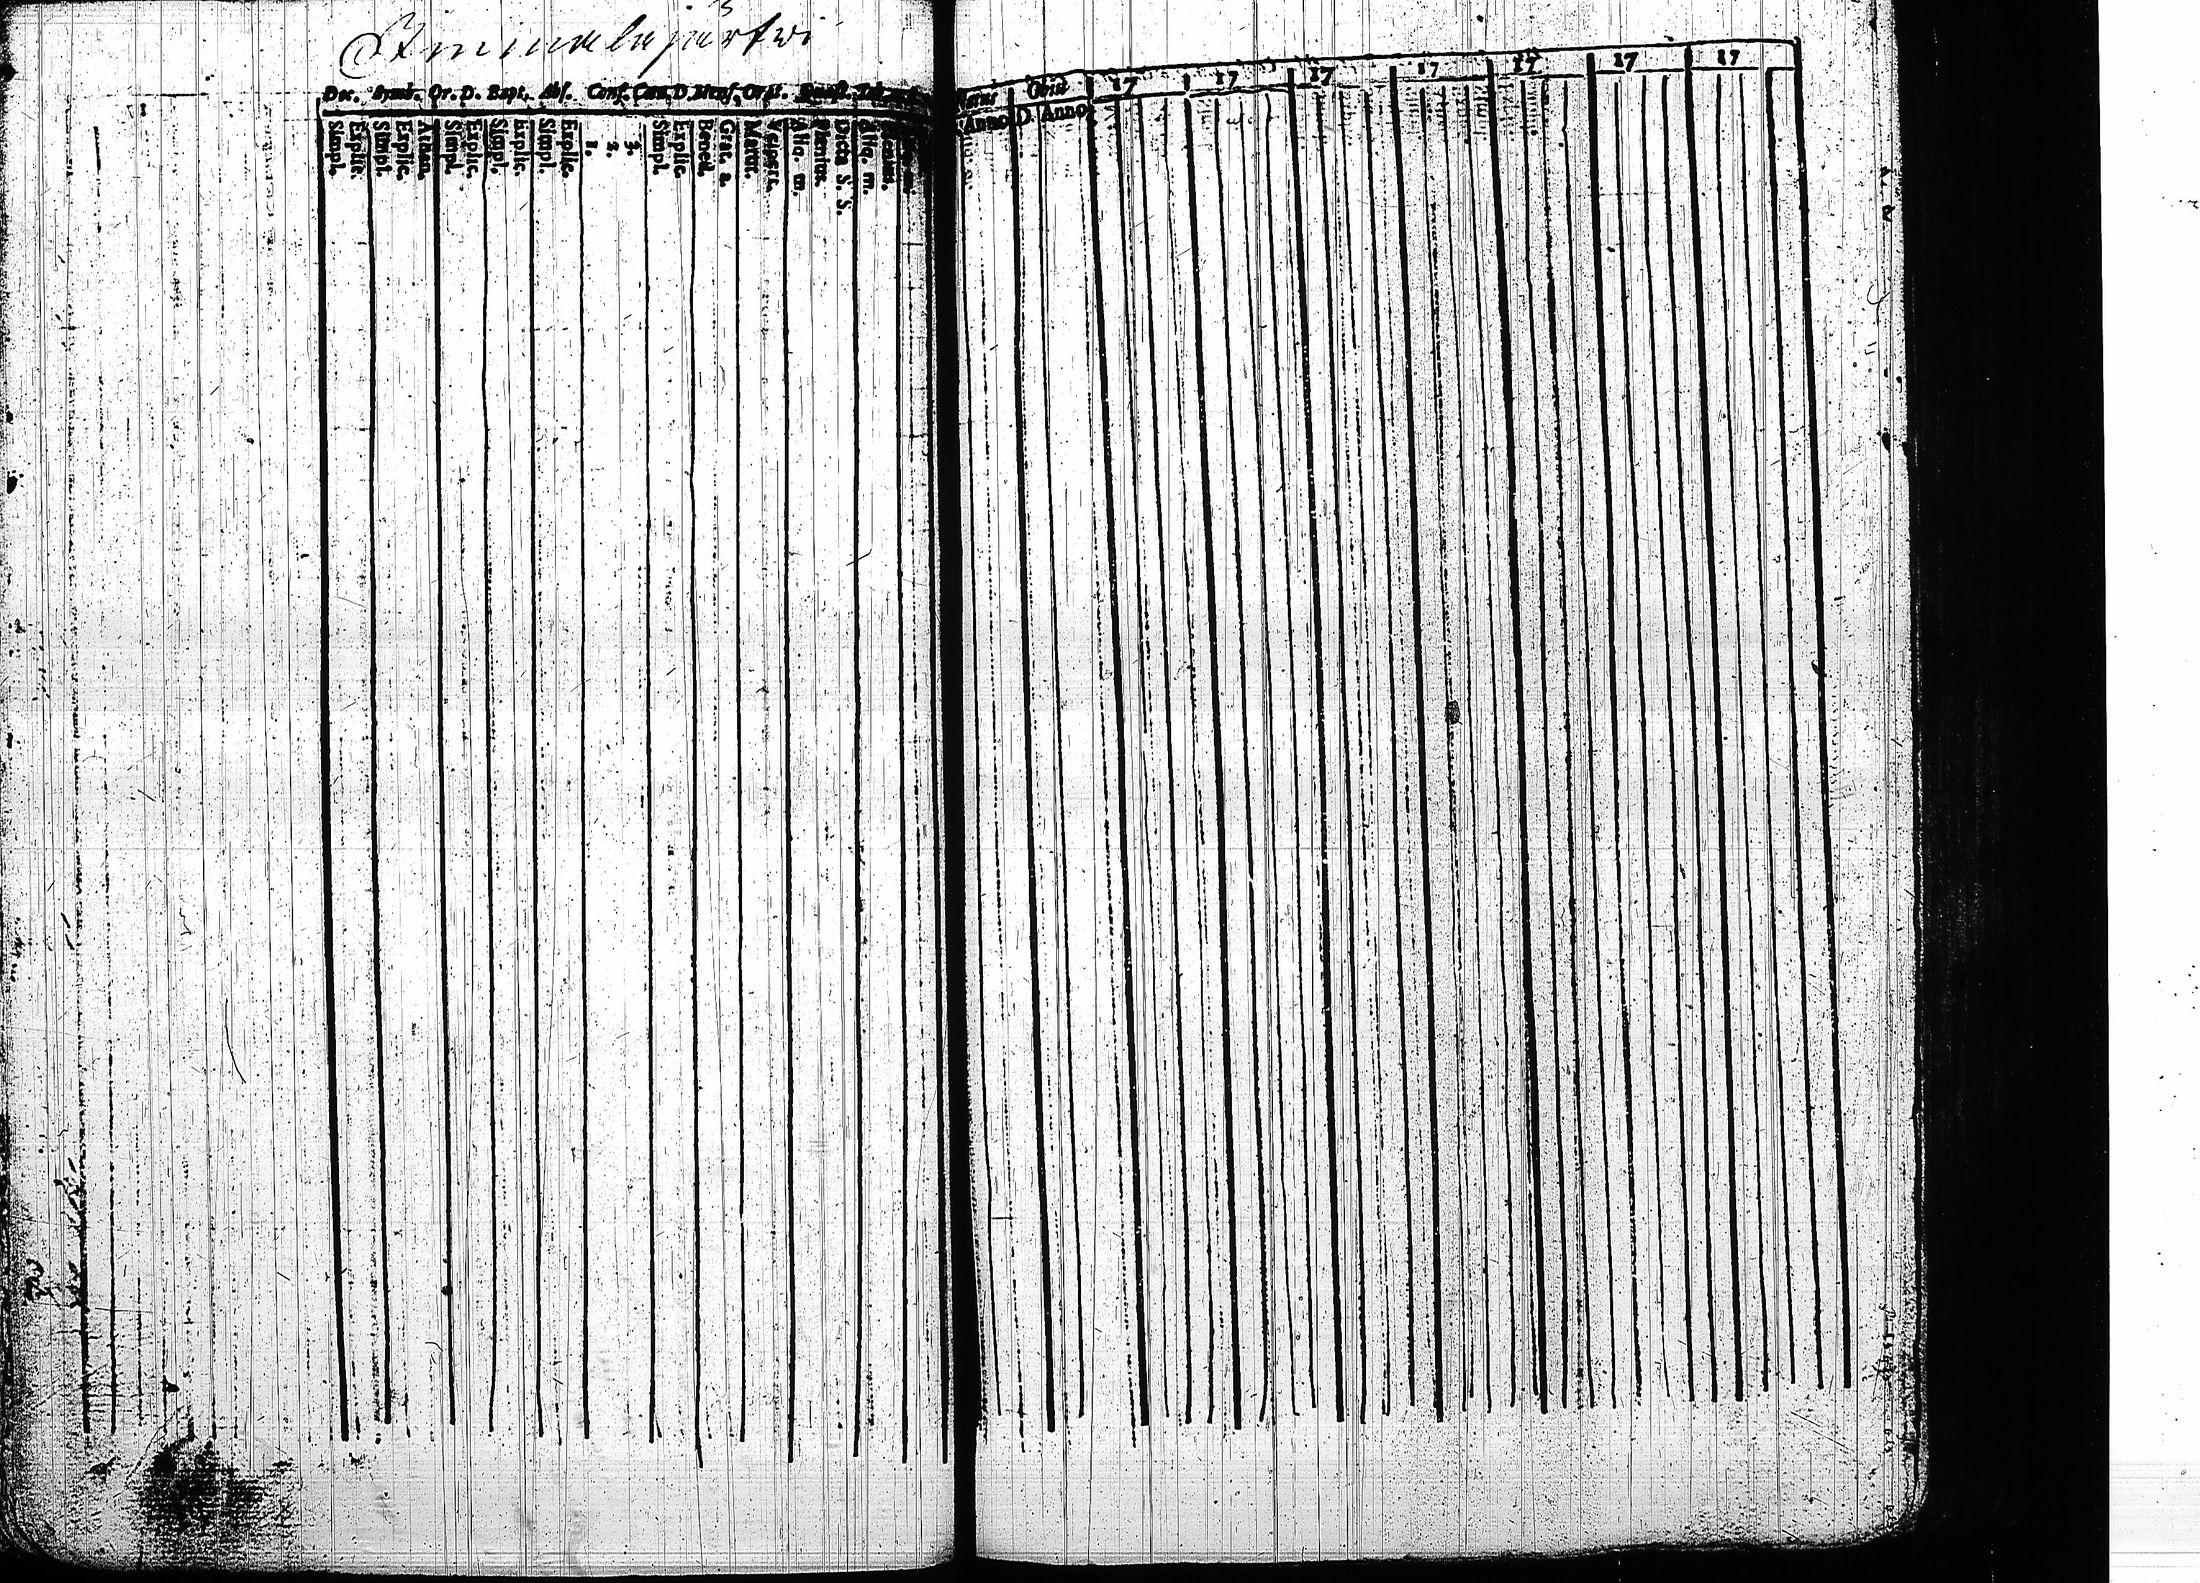 Dec. Symb. Or. D. Bapt. Abs. Conf. Cœn. D. Mens. Orat. Quæst.
Simpl. Explic. Simpl. Explic. Athan. Simpl. Explic. Simpl. Explic. Simpl. Explic. 1. 2. 3. Simpl. Explic. Bened. Grat. a. Matut. Vespert. Allo. m. Plenius. Dicta S. S. Allo. m. Plenius.
Obiit 17 17 17 17 17 17 17
Anno D. Anno